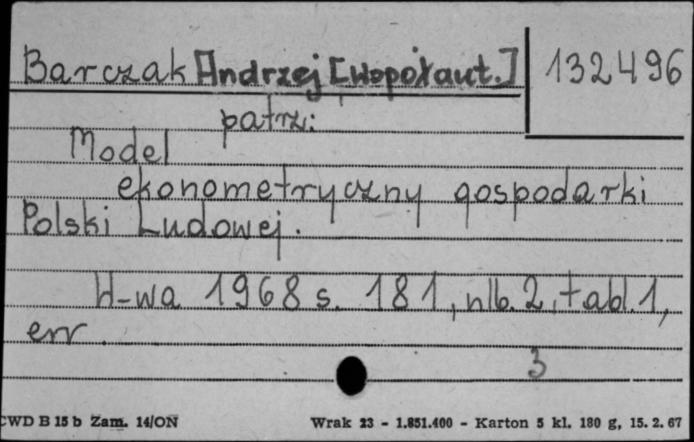 Barczak Andrzej [Współaut.] 132496
patrz:
Model
ekonometryczny gospodarki
Polski Ludowej.
W-wa 1968 s. 181, nlb. 2, tabl. 1,
err.
3
CWD B 15 b Zam. 14/ON Wrak 23 - 1.851.400 - Karton 5 kl. 180 g, 15. 2. 67